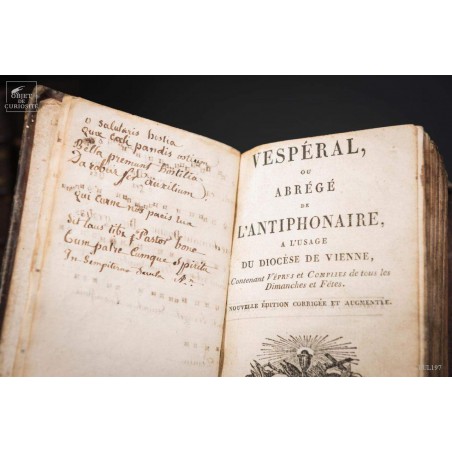 OBJET
DE
CURIOSITÉ
o salutaris hostia
Quæ Cœli pandis ostium
Bella premunt hostilia
Da robur fer auxilium
Qui Carne nos pacis tua
sit laus tibi Pastor bone
Cum patre Cumque Spiritu
In Sempiterna Secula
VESPÉRAL,
OU
ABRÉGÉ
DE
L'ANTIPHONAIRE,
A L'USAGE
DU DIOCÈSE DE VIENNE,
Contenant VÊPRES et COMPLIES de tous les
Dimanches et Fêtes.
NOUVELLE ÉDITION CORRIGÉE ET AUGMENTÉE.